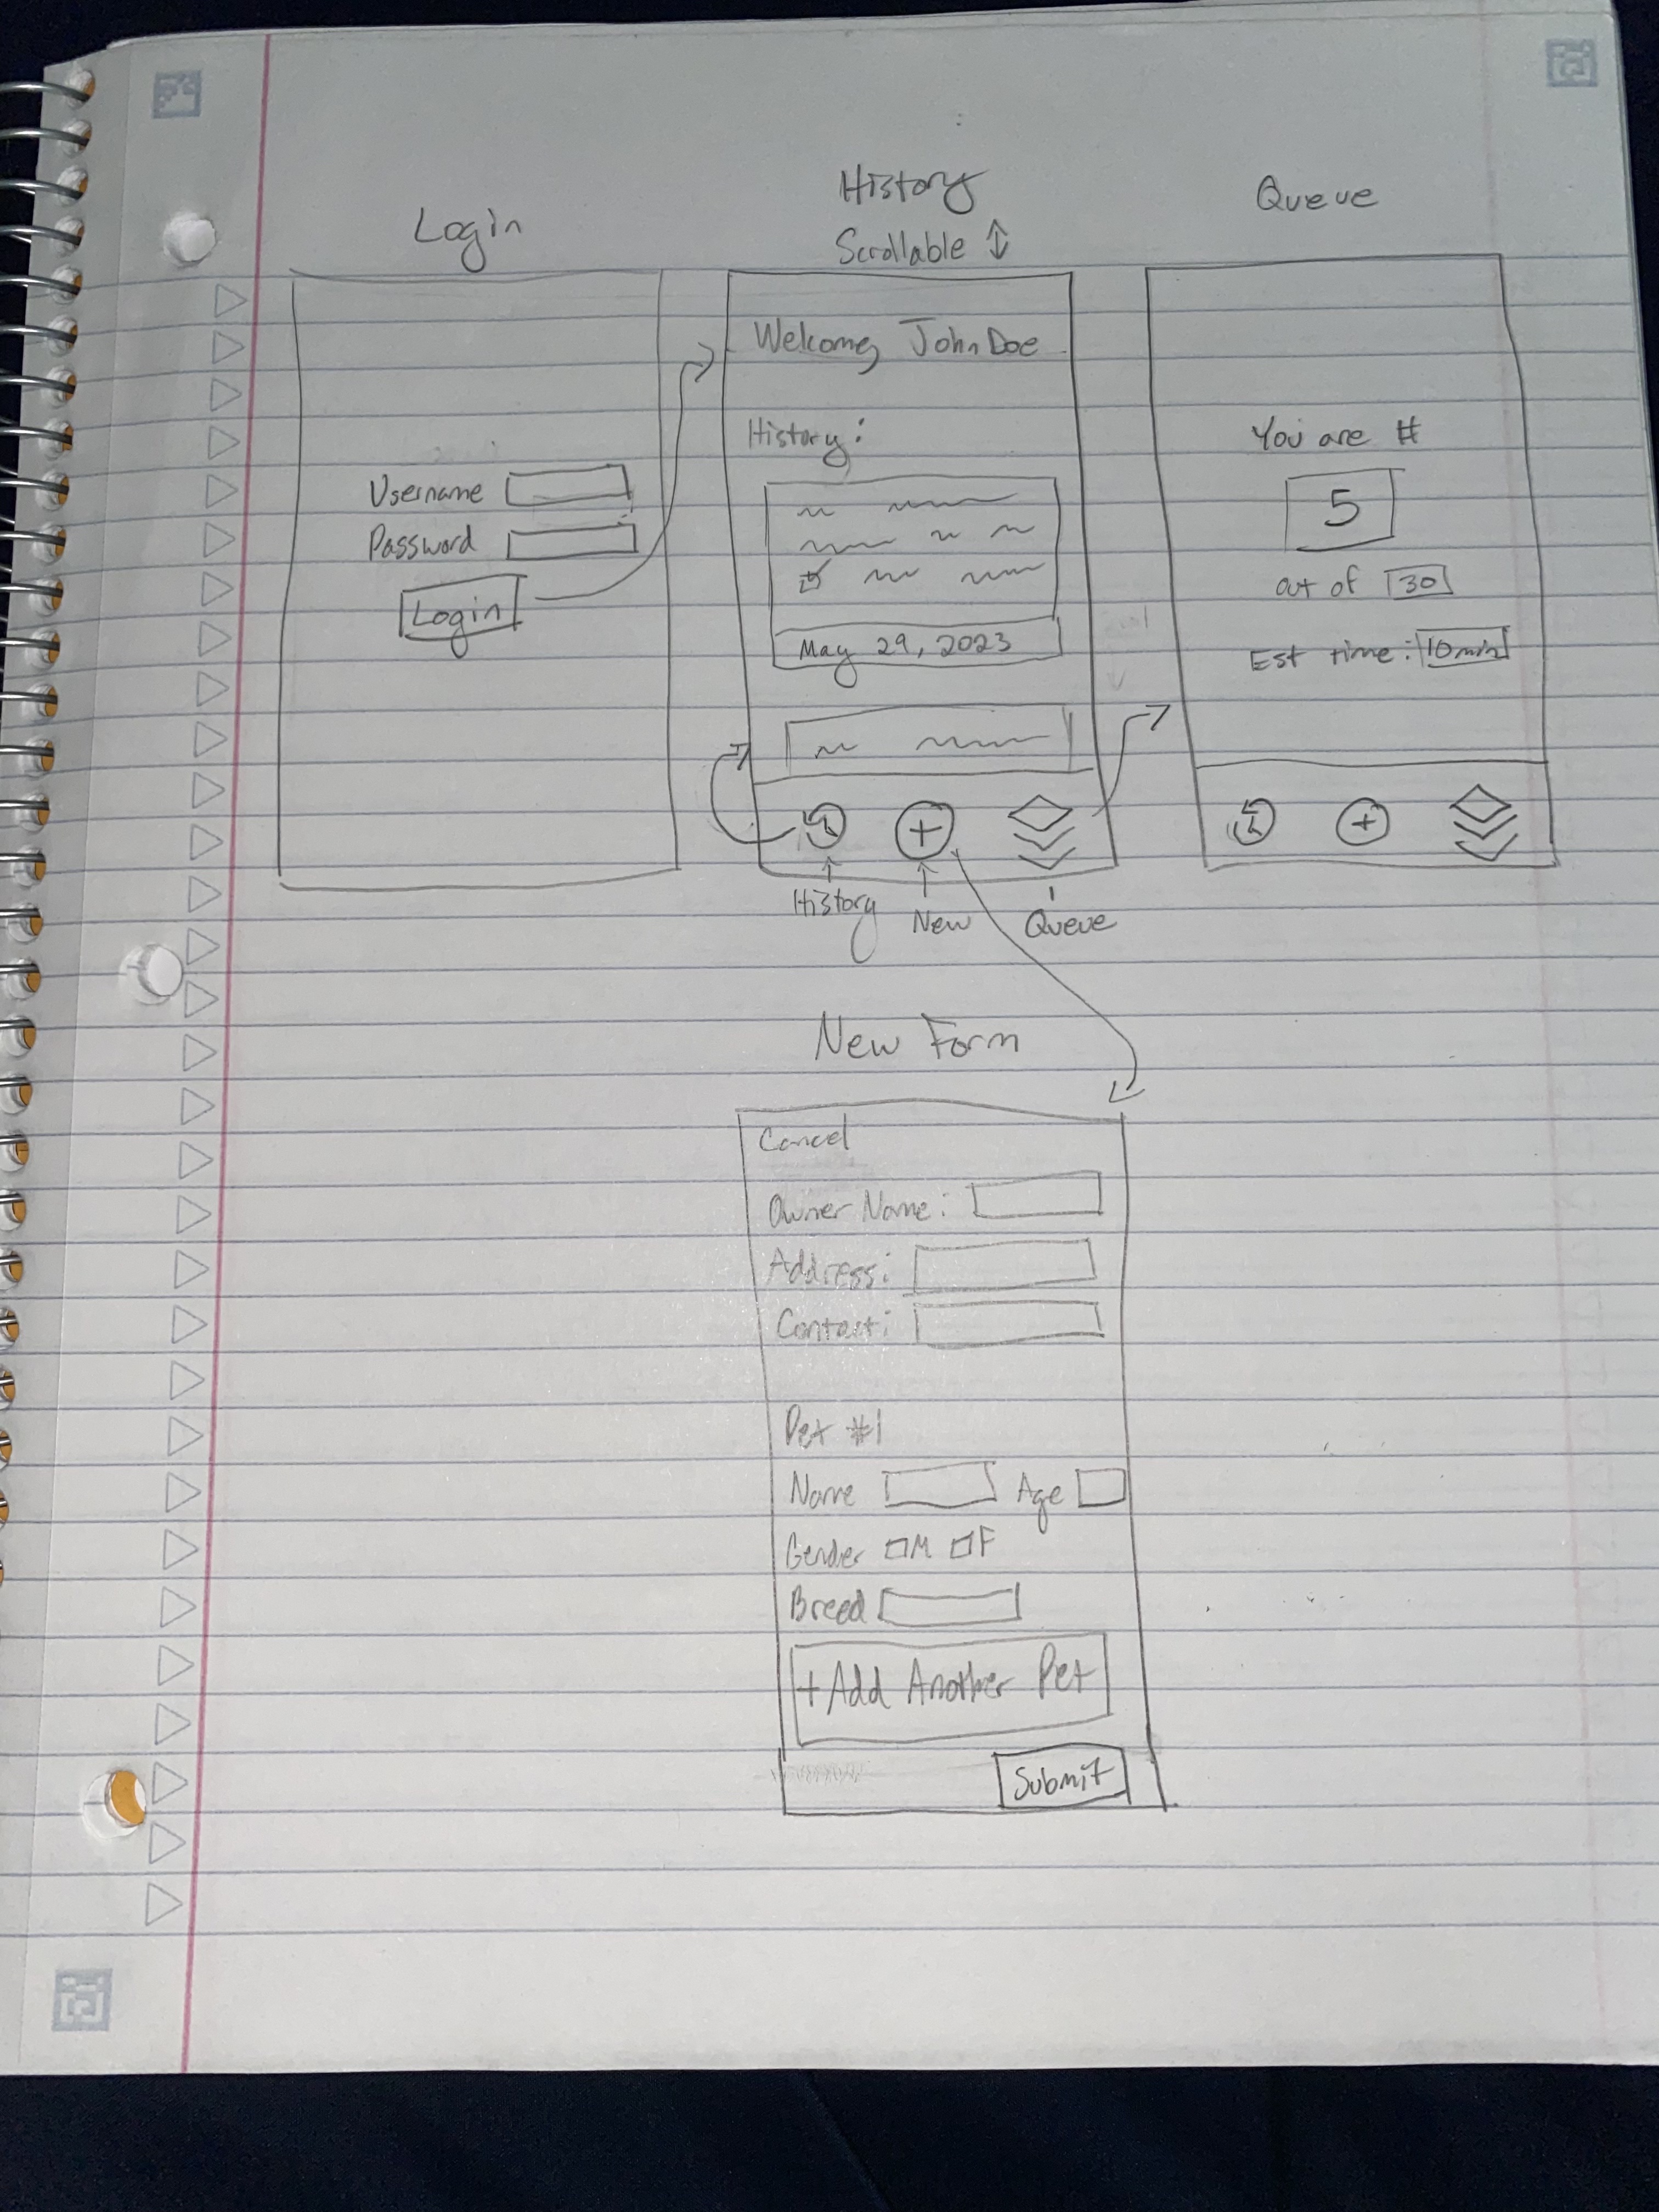 Login
Username
Password
Login
History
Scrollable
Welcome, John Doe
History:
May 29, 2023
History
New
Queue
Queue
You are #
5
out of 30
Est time: 10min
New Form
Cancel
Owner Name:
Address:
Contact:
Pet #1
Name Age
Gender M F
Breed
+ Add Another Pet
Submit